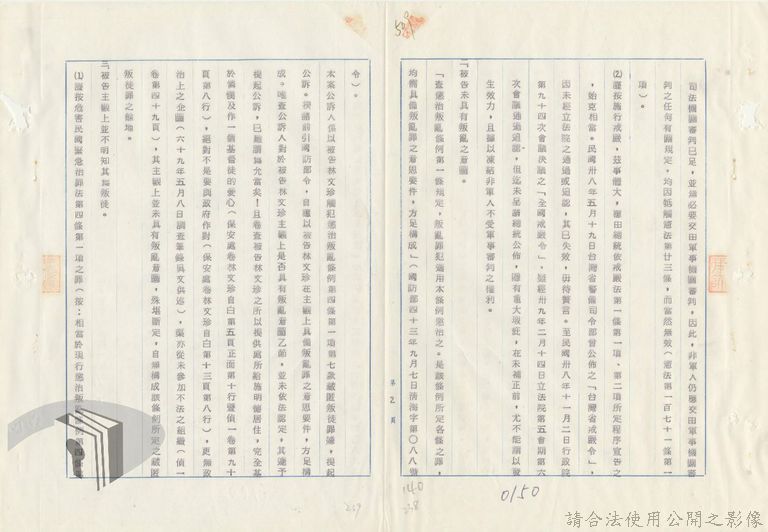 司法機關審判已足，並無必要交由軍事機關審判，因此，非軍人仍應交由軍事機關審
判之任何有關規定，均因牴觸憲法第廿三條，而當然無效（憲法第一百七十一條第一
項）。
⑵證按施行戒嚴，茲事體大，應由總統依戒嚴法第一條第一項、第二項所定程序宣告之
，始克相當。民國卅八年五月十九日台灣省警備司令部曾公佈之「台灣省戒嚴令」，
因未經立法院之通過或追認，其已失效，毋待贅言。至民國卅八年十一月二日行政院
第九十四次會議決議之「全國戒嚴令」，雖經卅九年二月十四日立法院第五會期第六
次會議通過追認，但迄未呈請總統公佈，顯有重大瑕疵，在未補正前，尤不能謂以發
生效力，且據以凍結非軍人不受軍事審判之權利。
二、被告未具有叛亂之意圖。
「查懲治叛亂條例第一條規定，叛亂罪犯適用本條例懲治之。是該條例所定各條之罪，
均需具備叛亂罪之意思要件，方足構成」（國防部四十三年九月七日清海字第○八八號
第 2 頁
令）。
本案公訴人係以被告林文珍觸犯懲治叛亂條例第四條第一項第七款藏匿叛徒罪嫌，提起
公訴。揆諸前引國防部令，自應以被告林文珍在主觀上具備叛亂罪之意思要件，方足構
成。唯查公訴人對於被告林文珍主觀上是否具有叛亂意圖乙節，並未依法認定，其遽予
提起公訴，已難謂無允當矣！且卷查被告林文珍之所以提供處所給施明德居住，完全基
於憐憫及作一個基督徒的愛心（保安處卷林文珍自白第五頁正面第十行暨偵一卷第九十
頁第八行），絕對不是要與政府作對（保安處卷林文珍自白第十三頁第八行），更無政
治上之企圖（六十九年五月八日調查筆錄吳文供述），渠亦從未參加不法之組織（偵一
卷第四十九頁），其主觀上並未具有叛亂意圖，殊堪斷定，自無構成該條例所定之藏匿
叛徒罪之餘地。
三、被告主觀上並不明知其為叛徒。
⑴證按危害民國緊急治罪法第四條第一項之罪（按：相當於現行懲治叛亂條例第四條
0150
140
238
239
請合法使用公開之影像